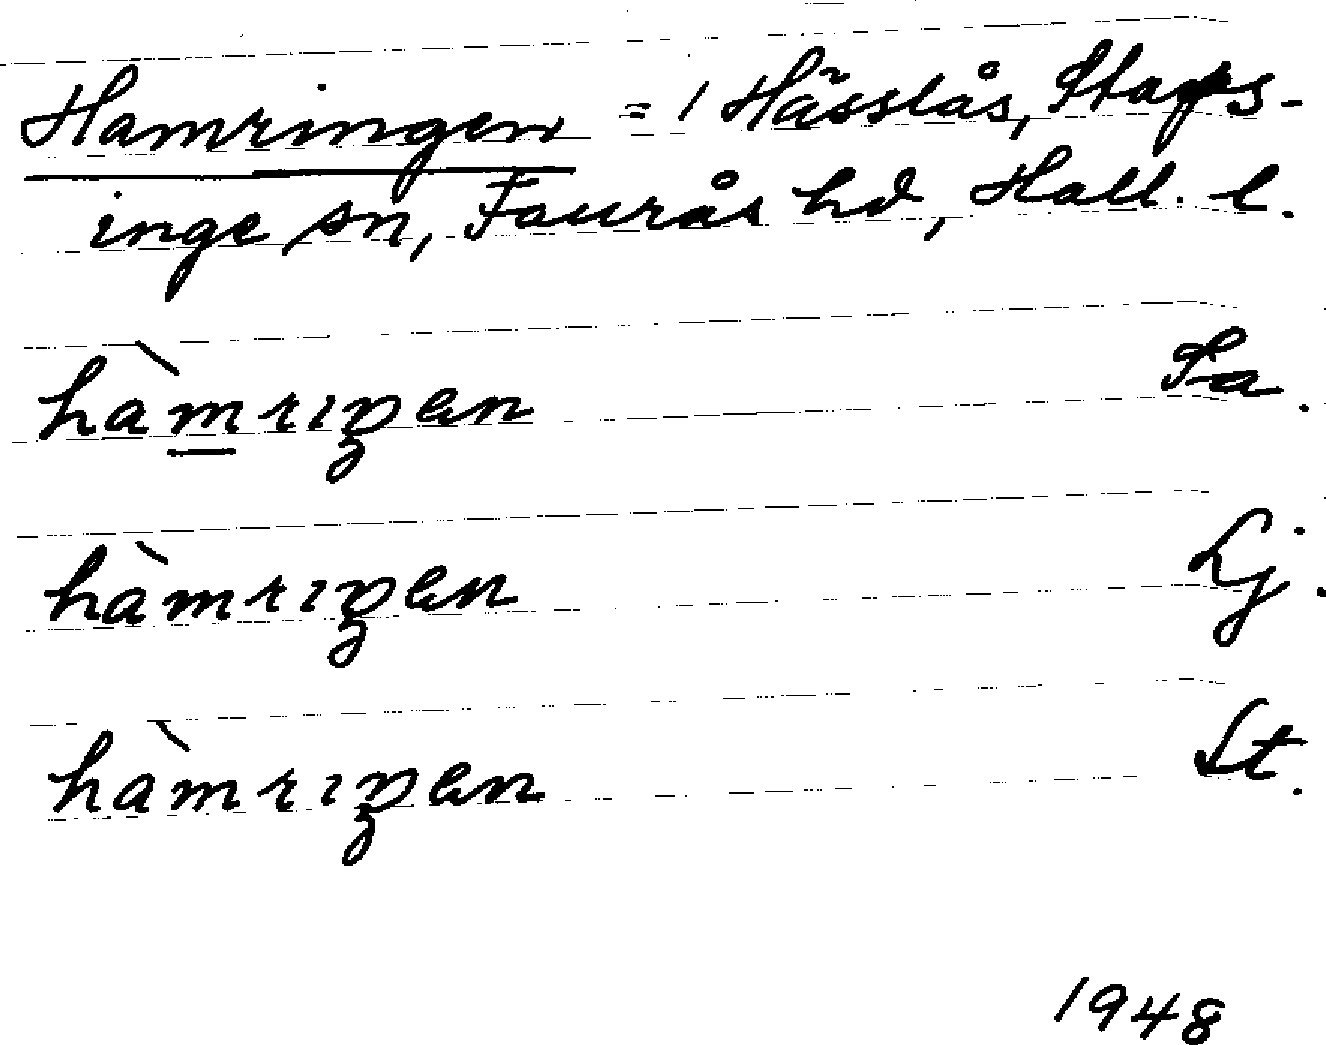 Hamringen = 1 Hässlås, Staps-
inge sn, Faurås hd, Hall. l.
hàmrıŋen Sa.
hàmrıŋen Lj.
hàmrıŋen St.
1948